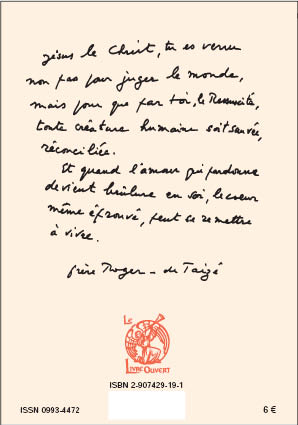 Jésus le Christ, tu es venu
non pas pour juger le monde,
mais pour que par toi, le Ressuscité,
toute créature humaine soit sauvée,
réconciliée.
Et quand l'amour qui pardonne
devient brûlure en soi, le cœur
même éprouvé, peut se remettre
à vivre.
frère Roger - de Taizé
Le
Livre Ouvert
ISBN 2-907429-19-1
ISSN 0993-4472
6 €